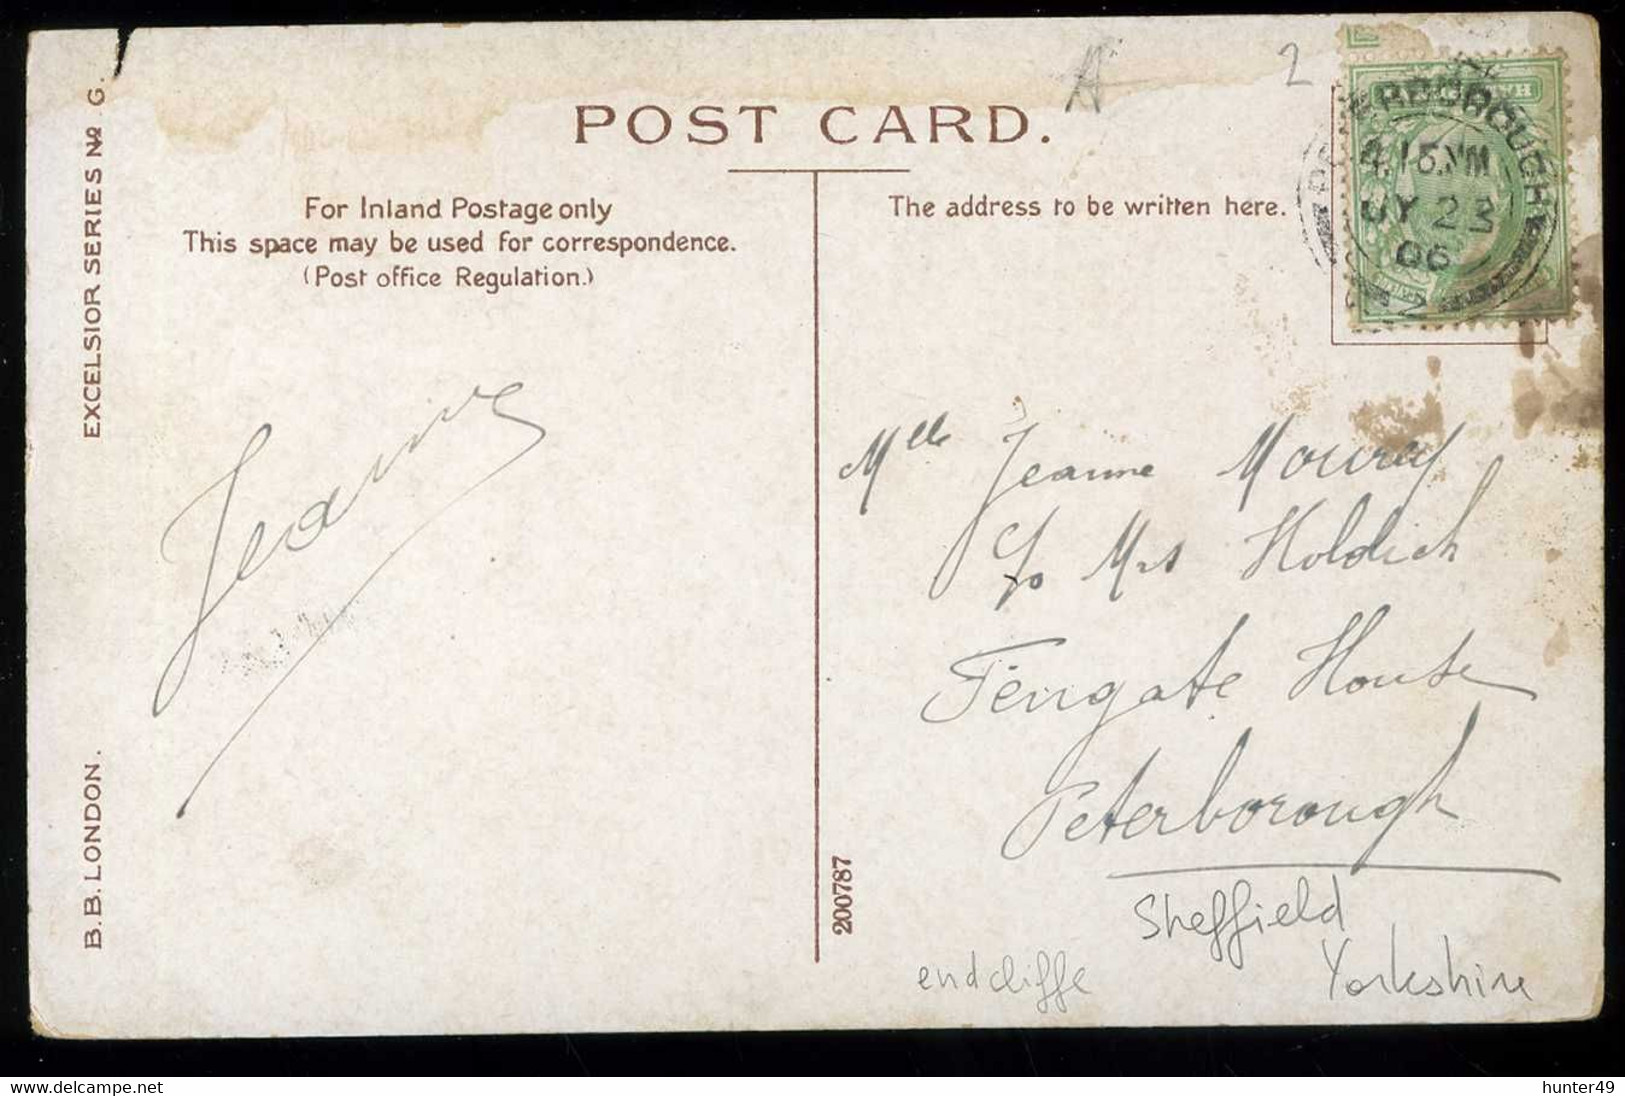 A
2
POST CARD.
For Inland Postage only
This space may be used for correspondence.
(Post office Regulation.)
The address to be written here.
EXCELSIOR SERIES No. G.
B.B. LONDON.
JY 23
06
2
Jeanne
Mlle Jeanne Mourey
c/o Mrs Holdich
Fengate House
Peterborough
200787
Sheffield
endcliffe
Yorkshire
delcampe.net
hunter49